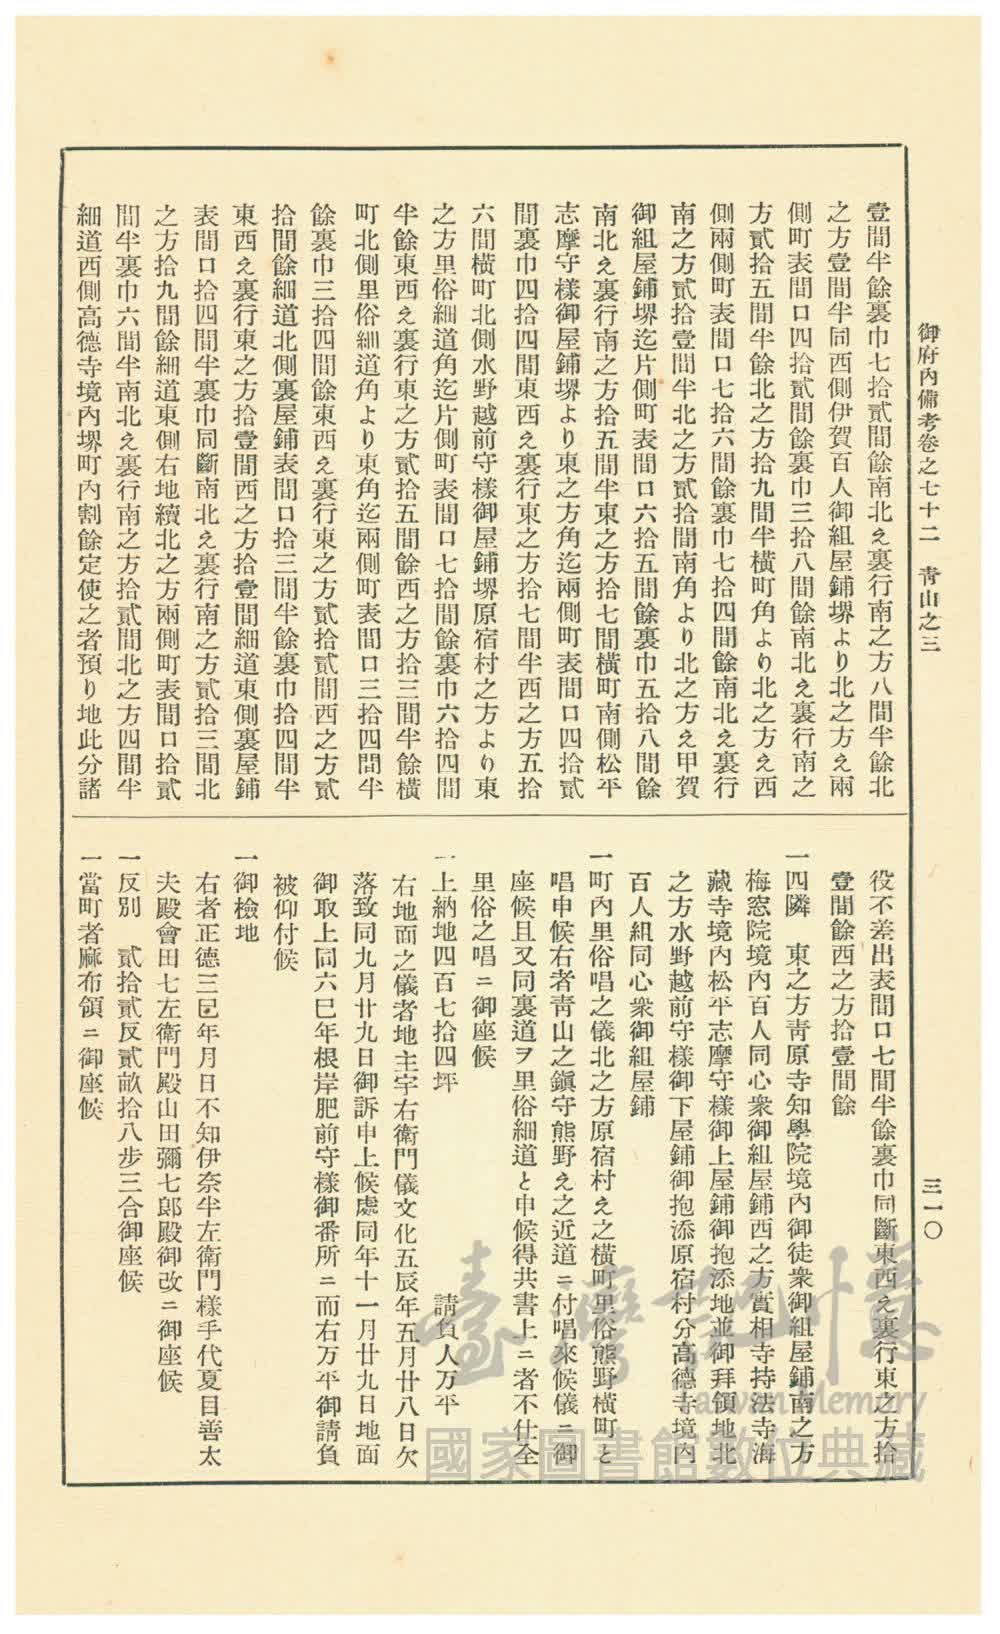 御府內備考卷之七十二　靑山之三
三一〇
壹間半餘裏巾七拾貳間餘南北え裏行南之方八間半餘北
之方壹間半同西側伊賀百人御組屋鋪堺より北之方え兩
側町表間口四拾貳間餘裏巾三拾八間餘南北え裏行南之
方貳拾五間半餘北之方拾九間半橫町角より北之方え西
側兩側町表間口七拾六間餘裏巾七拾四間餘南北え裏行
南之方貳拾壹間半北之方貳拾間南角より北之方え甲賀
御組屋鋪堺迄片側町表間口六拾五間餘裏巾五拾八間餘
南北え裏行南之方拾五間半東之方拾七間橫町南側松平
志摩守樣御屋鋪堺より東之方角迄兩側町表間口四拾貳
間裏巾四拾四間東西え裏行東之方拾七間半西之方五拾
六間橫町北側水野越前守樣御屋鋪堺原宿村之方より東
之方里俗細道角迄片側町表間口七拾間餘裏巾六拾四間
半餘東西え裏行東之方貳拾五間餘西之方拾三間半餘橫
町北側里俗細道角より東角迄兩側町表間口三拾四間半
餘裏巾三拾四間餘東西え裏行東之方貳拾貳間西之方貳
拾間餘細道北側裏屋鋪表間口拾三間半餘裏巾拾四間半
東西え裏行東之方拾壹間西之方拾壹間細道東側裏屋鋪
表間口拾四間半裏巾同斷南北え裏行南之方貳拾三間北
之方拾九間餘細道東側右地續北之方兩側町表間口拾貳
間半裏巾六間半南北え裏行南之方拾貳間北之方四間半
細道西側高德寺境內堺町內割餘定使之者預り地此分諸
役不差出表間口七間半餘裏巾同斷東西え裏行東之方拾
壹間餘西之方拾壹間餘
一四隣　東之方靑原寺知學院境內御徒衆御組屋鋪南之方
梅窓院境內百人同心衆御組屋鋪西之方實相寺持法寺海
藏寺境內松平志摩守樣御上屋鋪御抱添地並御拜領地北
之方水野越前守樣御下屋鋪御抱添原宿村分高德寺境內
百人組同心衆御組屋鋪
一町內里俗唱之儀北之方原宿村え之橫町里俗熊野橫町と
唱申候右者靑山之鎭守熊野え之近道ニ付唱來候儀ニ御
座候且又同裏道ヲ里俗細道と申候得共書上ニ者不仕全
里俗之唱ニ御座候
一上納地四百七拾四坪　　請負人万平
右地面之儀者地主宇右衞門儀文化五辰年五月廿八日欠
落致同九月廿九日御訴申上候處同年十一月廿九日地面
御取上同六巳年根岸肥前守樣御番所ニ而右万平御請負
被仰付候
一御檢地
右者正德三巳年月日不知伊奈半左衞門樣手代夏目善太
夫殿會田七左衞門殿山田彌七郞殿御改ニ御座候
一反別　貳拾貳反貳畝拾八步三合御座候
一當町者麻布領ニ御座候
臺灣記憶
Taiwan Memory
國家圖書館數位典藏